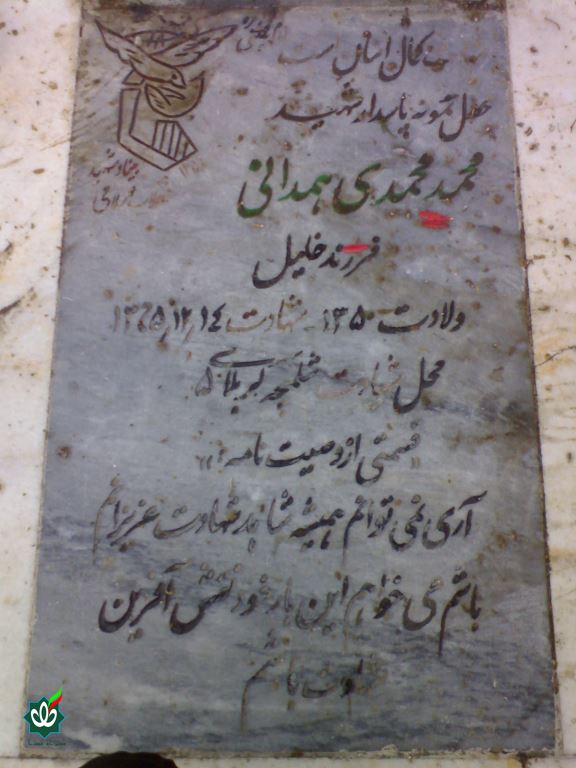 کمال انسانی است
عمل نمونه پاسدار شهید
محمد محمدی همدانی
فرزند خلیل
ولادت ۱۳۵۰ - شهادت ۱۳٦۵/۱۲/۱٤
محل شهادت شلمچه کربلای ۵
قسمتی از وصیت نامه :
آری نمی توانم همیشه شاهد شهادت عزیزانم
باشم می خواهم این بار خود نقش آفرین
باشم
بنیاد شهید